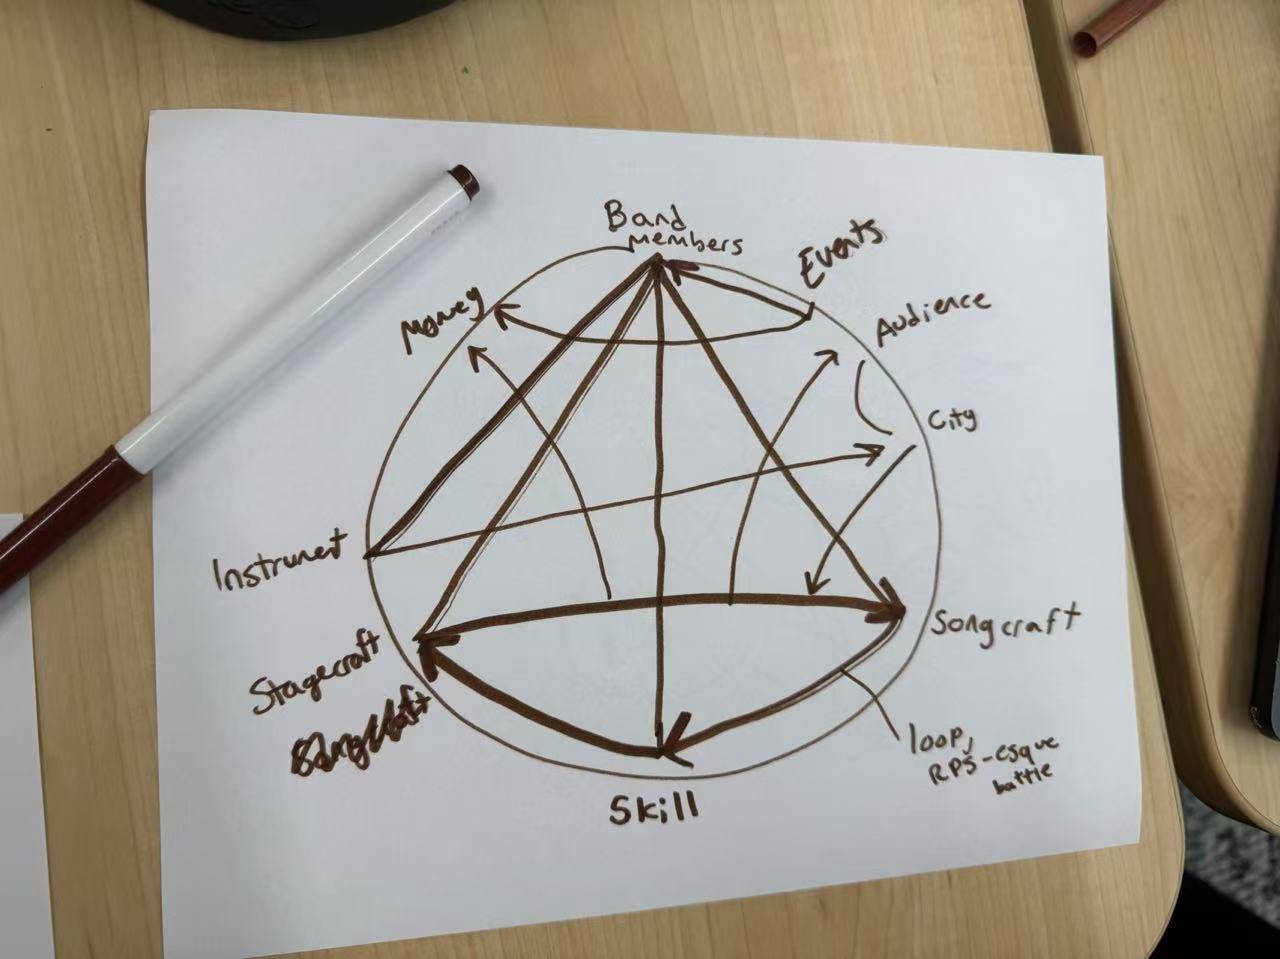 Band
Members
Events
Money
Audience
City
Instrument
Songcraft
Stagecraft
loop,
RPS-esque
battle
Skill